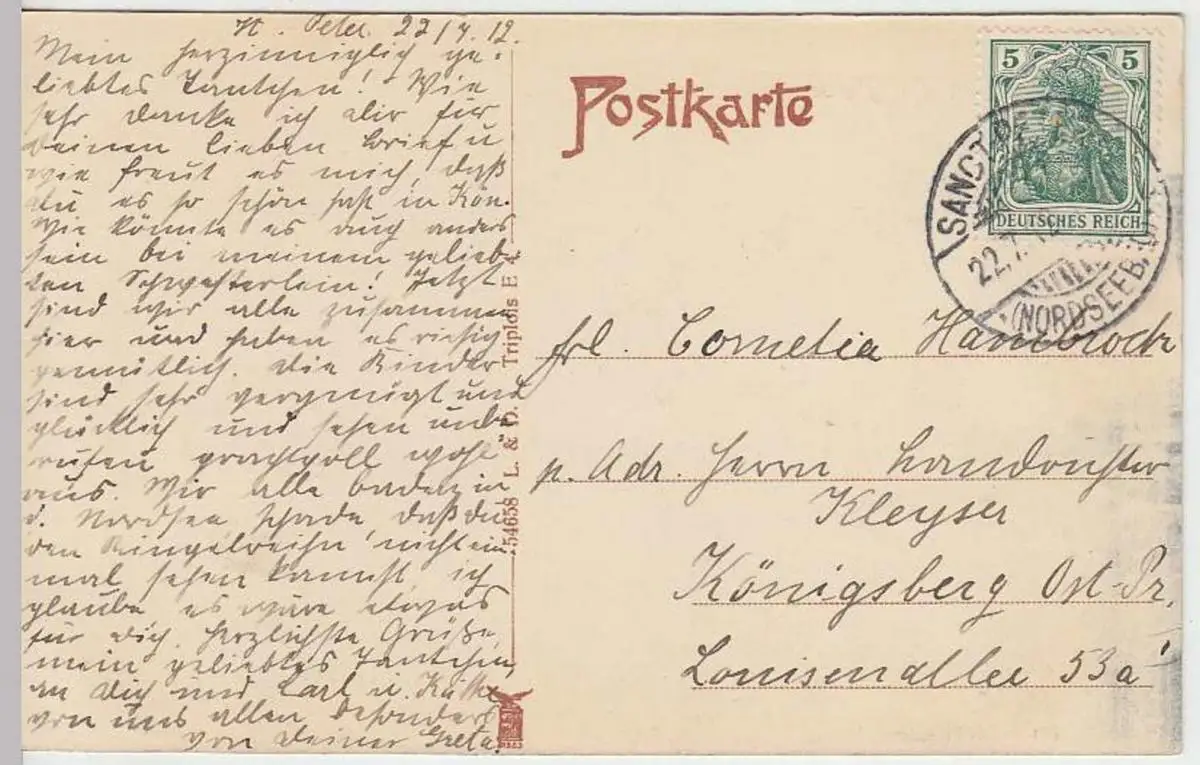 St. Peter 22/7. 12.
Mein herzinniglich ge-
liebtes Tantchen! Wie
sehr danke ich dir für
Deinen lieben Brief u
wie freut es mich, daß
du es so schön hast in Kön.
Wie könnte es auch anders
sein bei meinem gelieb-
ten Schwesterlein! Jetzt
sind wir alle zusammen
hier und haben es riesig
gemütlich. Die Kinder
sind sehr vergnügt und
glücklich und sehen un-
rufen prachtvoll wohl
aus. Wir alle baden in
d. Nordsee schade, daß du
den Ringelreihn' nicht ein
mal sehen kannst, ich
glaube es wäre etwas
für dich. Herzlichste Grüße,
mein geliebtes Tantchen,
an dich und Carl u. Käthe
von uns allen besonders
von deiner Greta.
54658 L. & P. Triplois E
Postkarte
5 5
DEUTSCHES REICH
SANCT PE
22.7.12
(NORDSEEB
Frl. Cornelia Hambrock
p. Adr. Herrn Landrichter
Kleyser
Königsberg Ost-Pr.
Louisenallee 53a